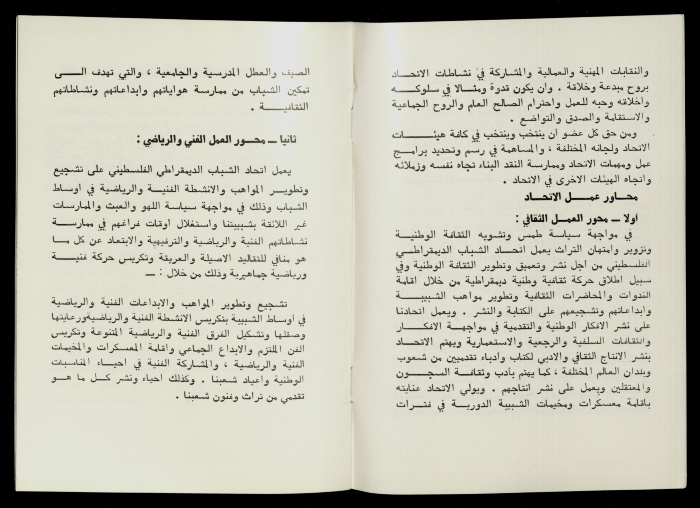 والنقابات المهنية والعمالية والمشاركة في نشاطات الاتحاد
بروح مبدعة وخلاقة . وان يكون قدوة ومثالا في سلوكـــه
واخلاقه وحبه للعمل واحترام الصالح العام والروح الجماعية
والاستقامة والصدق والتواضع .
ومن حق كل عضو ان ينتخب وينتخب في كافة هيئــات
الاتحاد ولجانه المختلفة ، والمساهمة في رسم وتحديد برامــج
عمل ومهمات الاتحاد وممارسة النقد البناء تجاه نفسه وزملائه
واتجاه الهيئات الاخرى في الاتحاد .
محــاور عمــل الاتحــاد
اولا ــ محور العمــل الثقافي :
في مواجهة سياسة طمس وتشويه الثقافة الوطنيــة
وتزوير وامتهان التراث يعمل اتحــاد الشباب الديمقراطــي
الفلسطيني من اجل نشر وتعميق وتطوير الثقافة الوطنية وفي
سبيل اطلاق حركة ثقافية وطنية ديمقراطية من خلال اقامة
الندوات والمحاضرات الثقافية وتطوير مواهب الشبيبــة
وابداعاتهم وتشجيعهم على الكتابة والنشر . ويعمل اتحادنــا
على نشر الافكار الوطنية والتقدمية في مواجهــة الافكــار
والثقافات السلفية والرجعية والاستعمارية ويهتم الاتحــاد
بنشر الانتاج الثقافي والادبي لكتاب وأدباء تقدميين من شعوب
وبلدان العالم المختلفة ، كما يهتم بأدب وثقافــة السجــون
والمعتقلين ويعمل على نشر انتاجهم . ويولي الاتحاد عنايته
باقامة معسكرات ومخيمات الشبيبة الدورية في فتــرات
الصيف والعطل المدرسية والجامعية ، والتي تهدف الــى
تمكين الشباب من ممارسة هواياتهم وابداعاتهم ونشاطاتهم
الثقافيــة .
ثانيا ــ محــور العمل الفني والرياضي :
يعمل اتحاد الشباب الديمقراطي الفلسطيني على تشجيع
وتطويــر المواهب والانشطة الفنيــة والرياضية في اوساط
الشباب وذلك في مواجهة سياسة اللهو والعبث والممارسات
غير اللائقة بشبيبتنا واستغلال اوقات فراغهم في ممارســة
نشاطاتهم الفنية والرياضية والترفيهية والابتعاد عن كل مــا
هو منافي للتقاليد الاصيلة والعريقة وتكريس حركة فنيــة
ورياضية جماهيرية وذلك من خلال : ــ
تشجيع وتطوير المواهب والابداعات الفنية والرياضية
في اوساط الشبيبة بتكريس الانشطة الفنية والرياضيةورعايتها
وصقلها وتشكيل الفرق الفنية والرياضية المتنوعة وتكريس
الفن الملتزم والابداع الجماعي واقامة المعسكرات والمخيمات
الفنية والرياضية ، والمشاركة الفنية في احيــاء المناسبات
الوطنية واعياد شعبنا . وكذلك احياء ونشر كــل مــا هــو
تقدمي من تراث وفنون شعبنا .